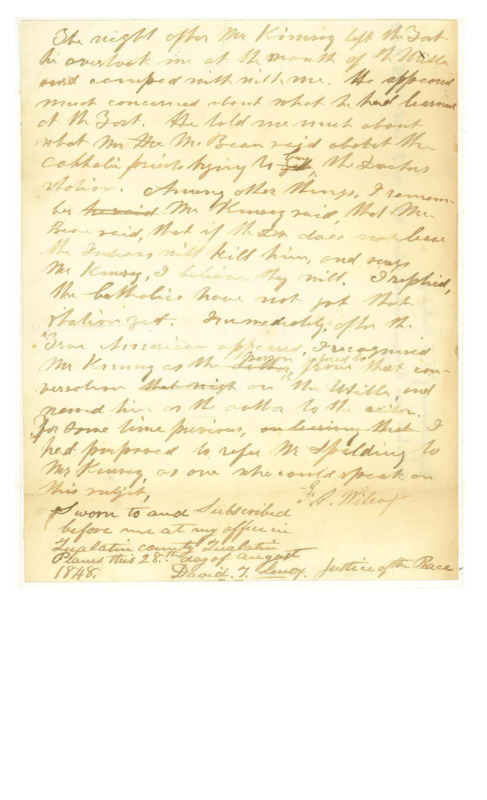 The night after Mr Kimsey left the Fort
he overtook me at the mouth of the Utilla
and camped with with me. He appeared
much concerned about what he had learned
at the Fort. He told me much about
what Mr the Mc Bean said about the
Catholic priests trying to buy the Doctors
Station. Among other things, I remem-
ber he said Mr Kimsey said, that Mc
Bean said, that if the Dr does not leave
the Indians will kill him, and says
Mr Kimsey, I believe they will. I replied,
the Catholics have not got that
station yet. Immediately after the
"True American appeared, I recognised
Mr Kimsey as the person, from that con-
versation that nigh on the Utilla, and
named him as the author to the editor.
For some time previous, on learning that I
had purposed to refer Mr Spalding to
Mr Kimsey, as one who could speak on
this subject,
Sworn to and Subscribed
before me at my office in
Tualatin county Tualatin
Planes this 28th day of August
1848. David. T. Lenox. Justice of the Peace